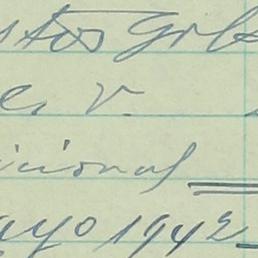 stos Gilb
er V.
icional
ayo 1942